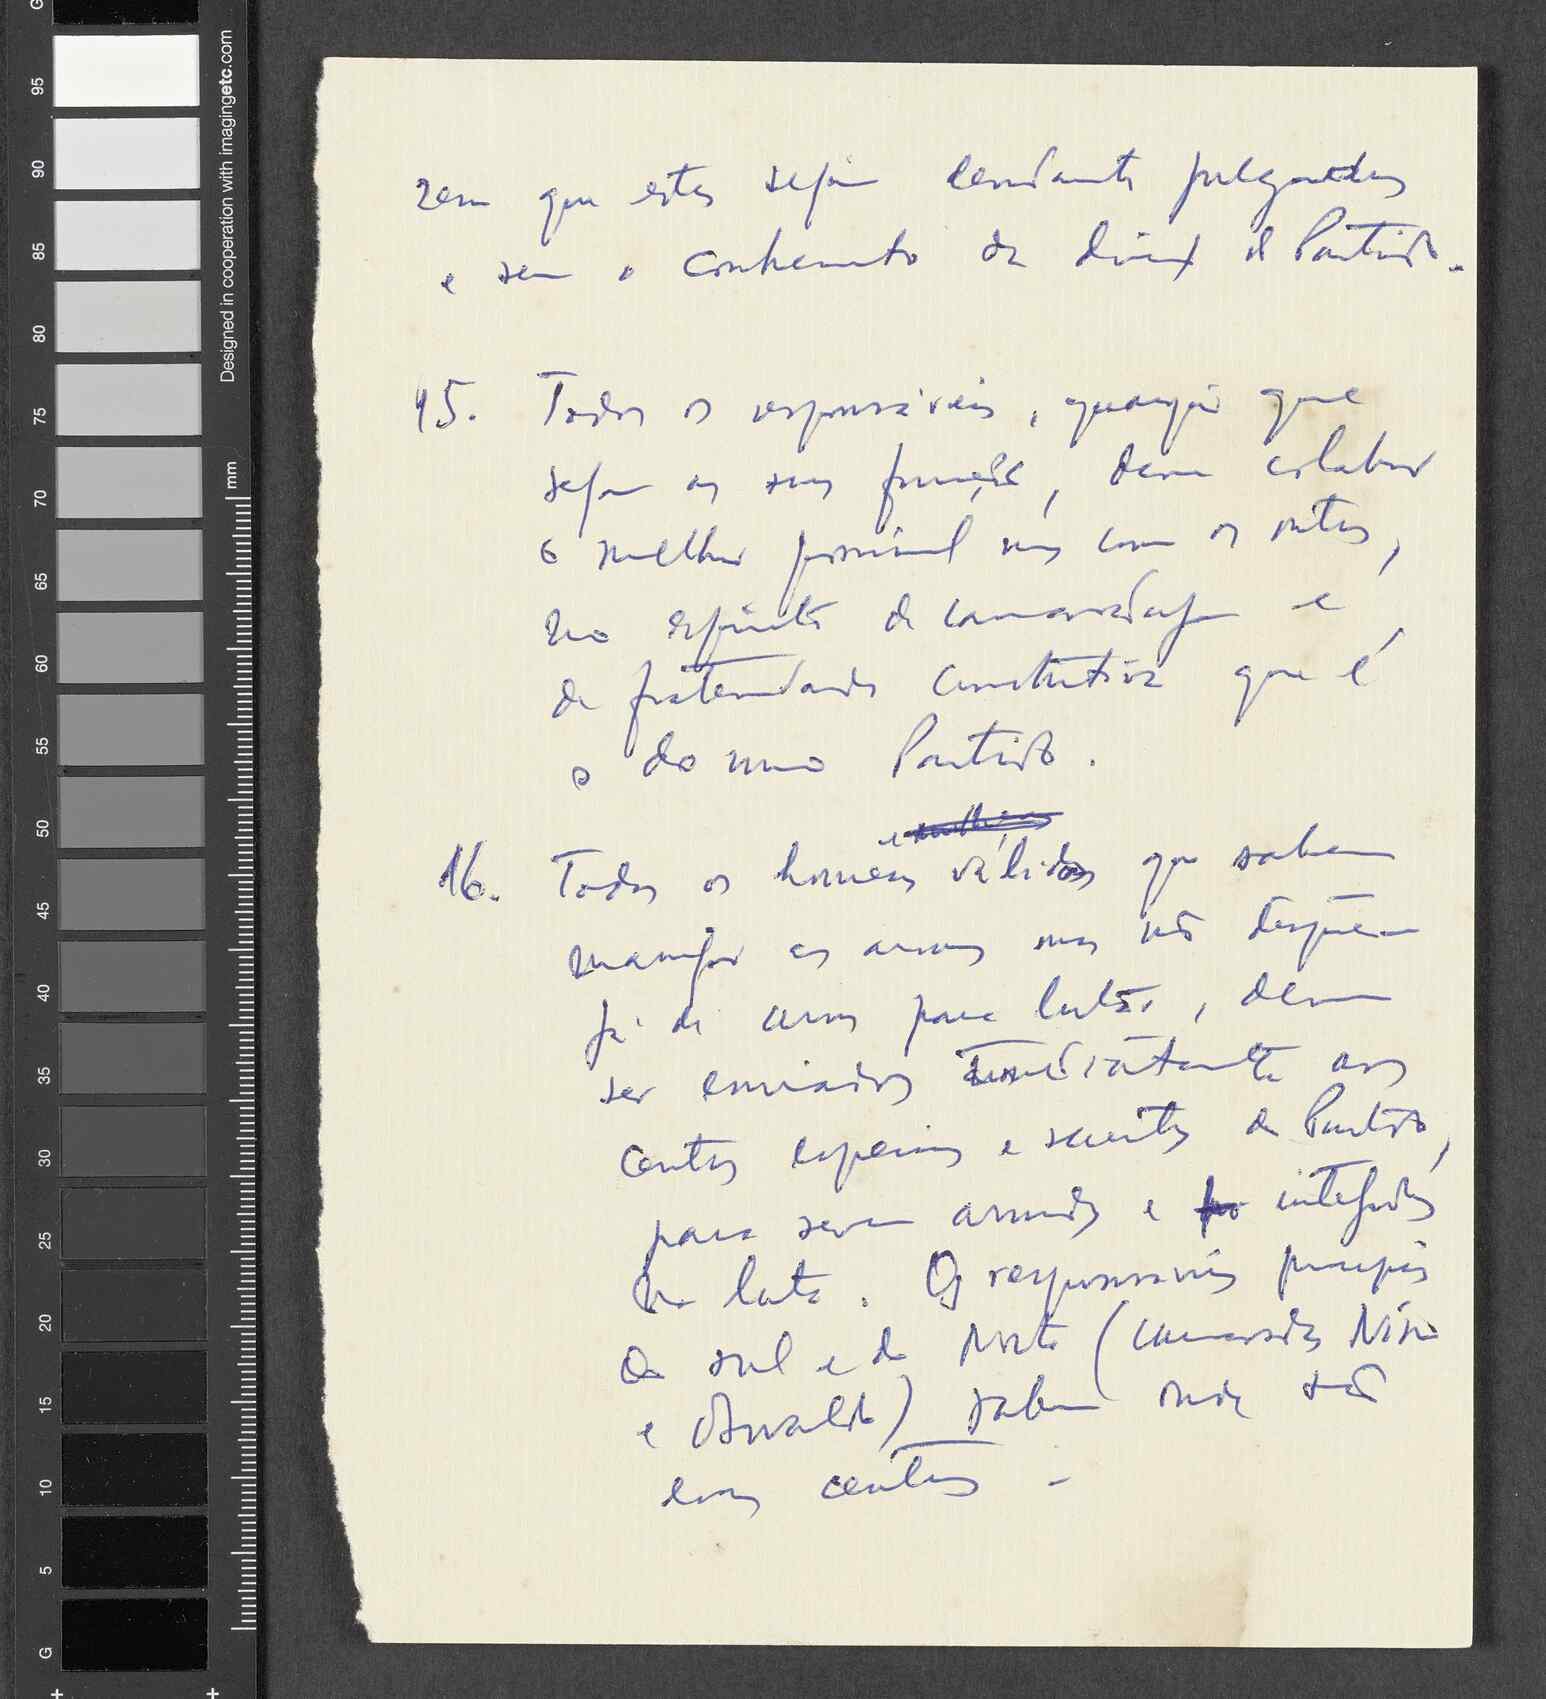 sem que estes sejam devidamente julgados
e sem o conhecimento da direcç do Partido.
15. Todos os responsáveis, quaisquer que
sejam as suas funções, devem colaborar
o melhor possível uns com os outros,
no espírito de camaradagem e
de fraternidade construtiva que é
o do nosso Partido.
e mulheres
16. Todos os homens válidos que sabem
manejar as armas mas não dispõem
já de armas para lutar, devem
ser enviados imediatamente aos
centros especiais e secretos do Partido,
para serem armados e integrados
na luta. Os responsáveis principais
do sul e do Norte (camaradas Nino
e Osvaldo) sabem onde são
esses centros.
G
95
90
85
80
75
70
65
60
55
50
45
40
35
30
25
20
15
10
5
G
mm
Designed in cooperation with imagingetc.com